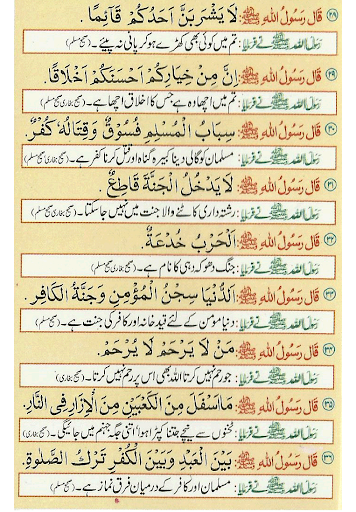 ﴿۲۸﴾ قَالَ رَسُوْلُ اللهِ ﷺ: لَا يَشْرَبَنَّ اَحَدُكُمْ قَآئِمًا.
رسول اللہ ﷺ نے فرمایا: تم میں کوئی بھی کھڑے ہو کر پانی نہ پیئے۔ (صحیح مسلم)
﴿۲۹﴾ قَالَ رَسُوْلُ اللهِ ﷺ: اِنَّ مِنْ خِيَارِكُمْ اَحْسَنَكُمْ اَخْلَاقًا.
رسول اللہ ﷺ نے فرمایا: تم میں اچھا وہ ہے جس کا اخلاق اچھا ہے۔ (صحیح بخاری صحیح مسلم)
﴿۳۰﴾ قَالَ رَسُوْلُ اللهِ ﷺ: سِبَابُ الْمُسْلِمِ فُسُوْقٌ وَقِتَالُهٗ كُفْرٌ.
رسول اللہ ﷺ نے فرمایا: مسلمان کو گالی دینا کبیرہ گناہ اور قتل کرنا کفر ہے۔ (صحیح بخاری صحیح مسلم)
﴿۳۱﴾ قَالَ رَسُوْلُ اللهِ ﷺ: لَا يَدْخُلُ الْجَنَّةَ قَاطِعٌ.
رسول اللہ ﷺ نے فرمایا: رشتہ داری کاٹنے والا جنت میں نہیں جا سکتا۔ (صحیح بخاری صحیح مسلم)
﴿۳۲﴾ قَالَ رَسُوْلُ اللهِ ﷺ: اَلْحَرْبُ خُدْعَةٌ.
رسول اللہ ﷺ نے فرمایا: جنگ دھوکہ دہی کا نام ہے۔ (صحیح بخاری صحیح مسلم)
﴿۳۳﴾ قَالَ رَسُوْلُ اللهِ ﷺ: اَلدُّنْيَا سِجْنُ الْمُؤْمِنِ وَجَنَّةُ الْكَافِرِ.
رسول اللہ ﷺ نے فرمایا: دنیا مومن کے لئے قید خانہ اور کافر کی جنت ہے۔ (صحیح مسلم)
﴿۳۴﴾ قَالَ رَسُوْلُ اللهِ ﷺ: مَنْ لَا يَرْحَمْ لَا يُرْحَمْ.
رسول اللہ ﷺ نے فرمایا: جو رحم نہیں کرتا اللہ بھی اس پر رحم نہیں کرتا۔ (صحیح بخاری)
﴿۳۵﴾ قَالَ رَسُوْلُ اللهِ ﷺ: مَا سَفَلَ مِنَ الْكَعْبَيْنِ مِنَ الْاِزَارِ فِي النَّارِ.
رسول اللہ ﷺ نے فرمایا: ٹخنوں سے نیچے جتنا کپڑا ہوا اتنی جگہ جہنم میں جائیگی۔ (صحیح بخاری)
﴿۳۶﴾ قَالَ رَسُوْلُ اللهِ ﷺ: بَيْنَ الْعَبْدِ وَبَيْنَ الْكُفْرِ تَرْكُ الصَّلٰوةِ.
رسول اللہ ﷺ نے فرمایا: مسلمان اور کافر کے درمیان فرق نماز ہے۔ (صحیح مسلم)